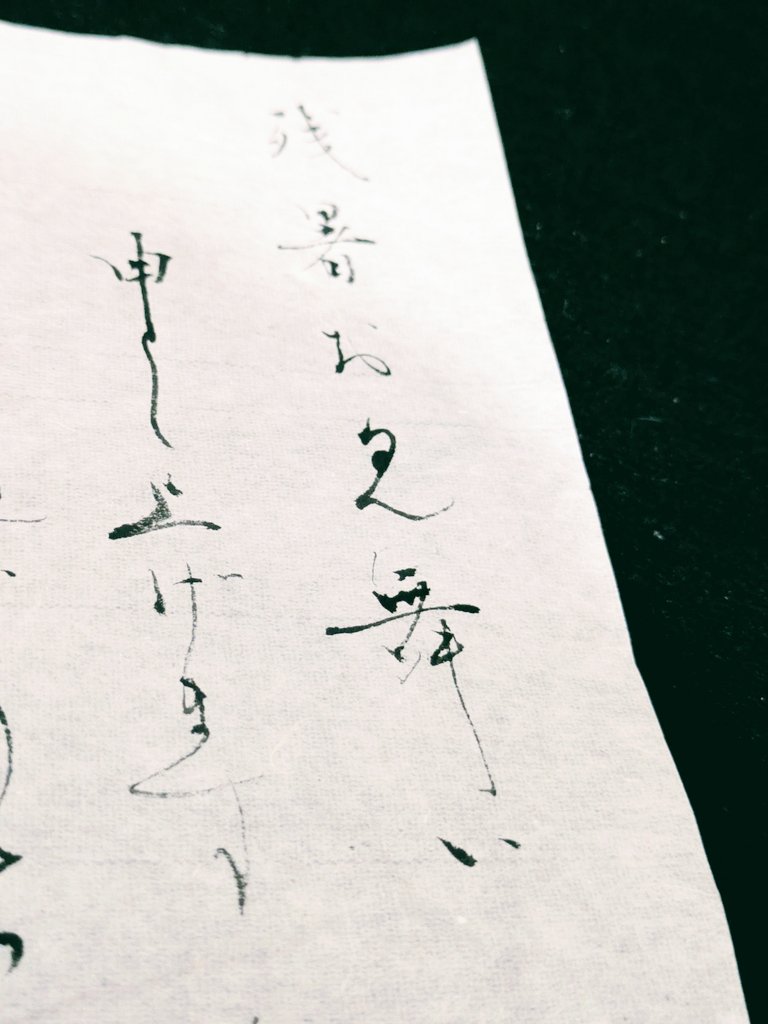 残暑お見舞い
申し上げます